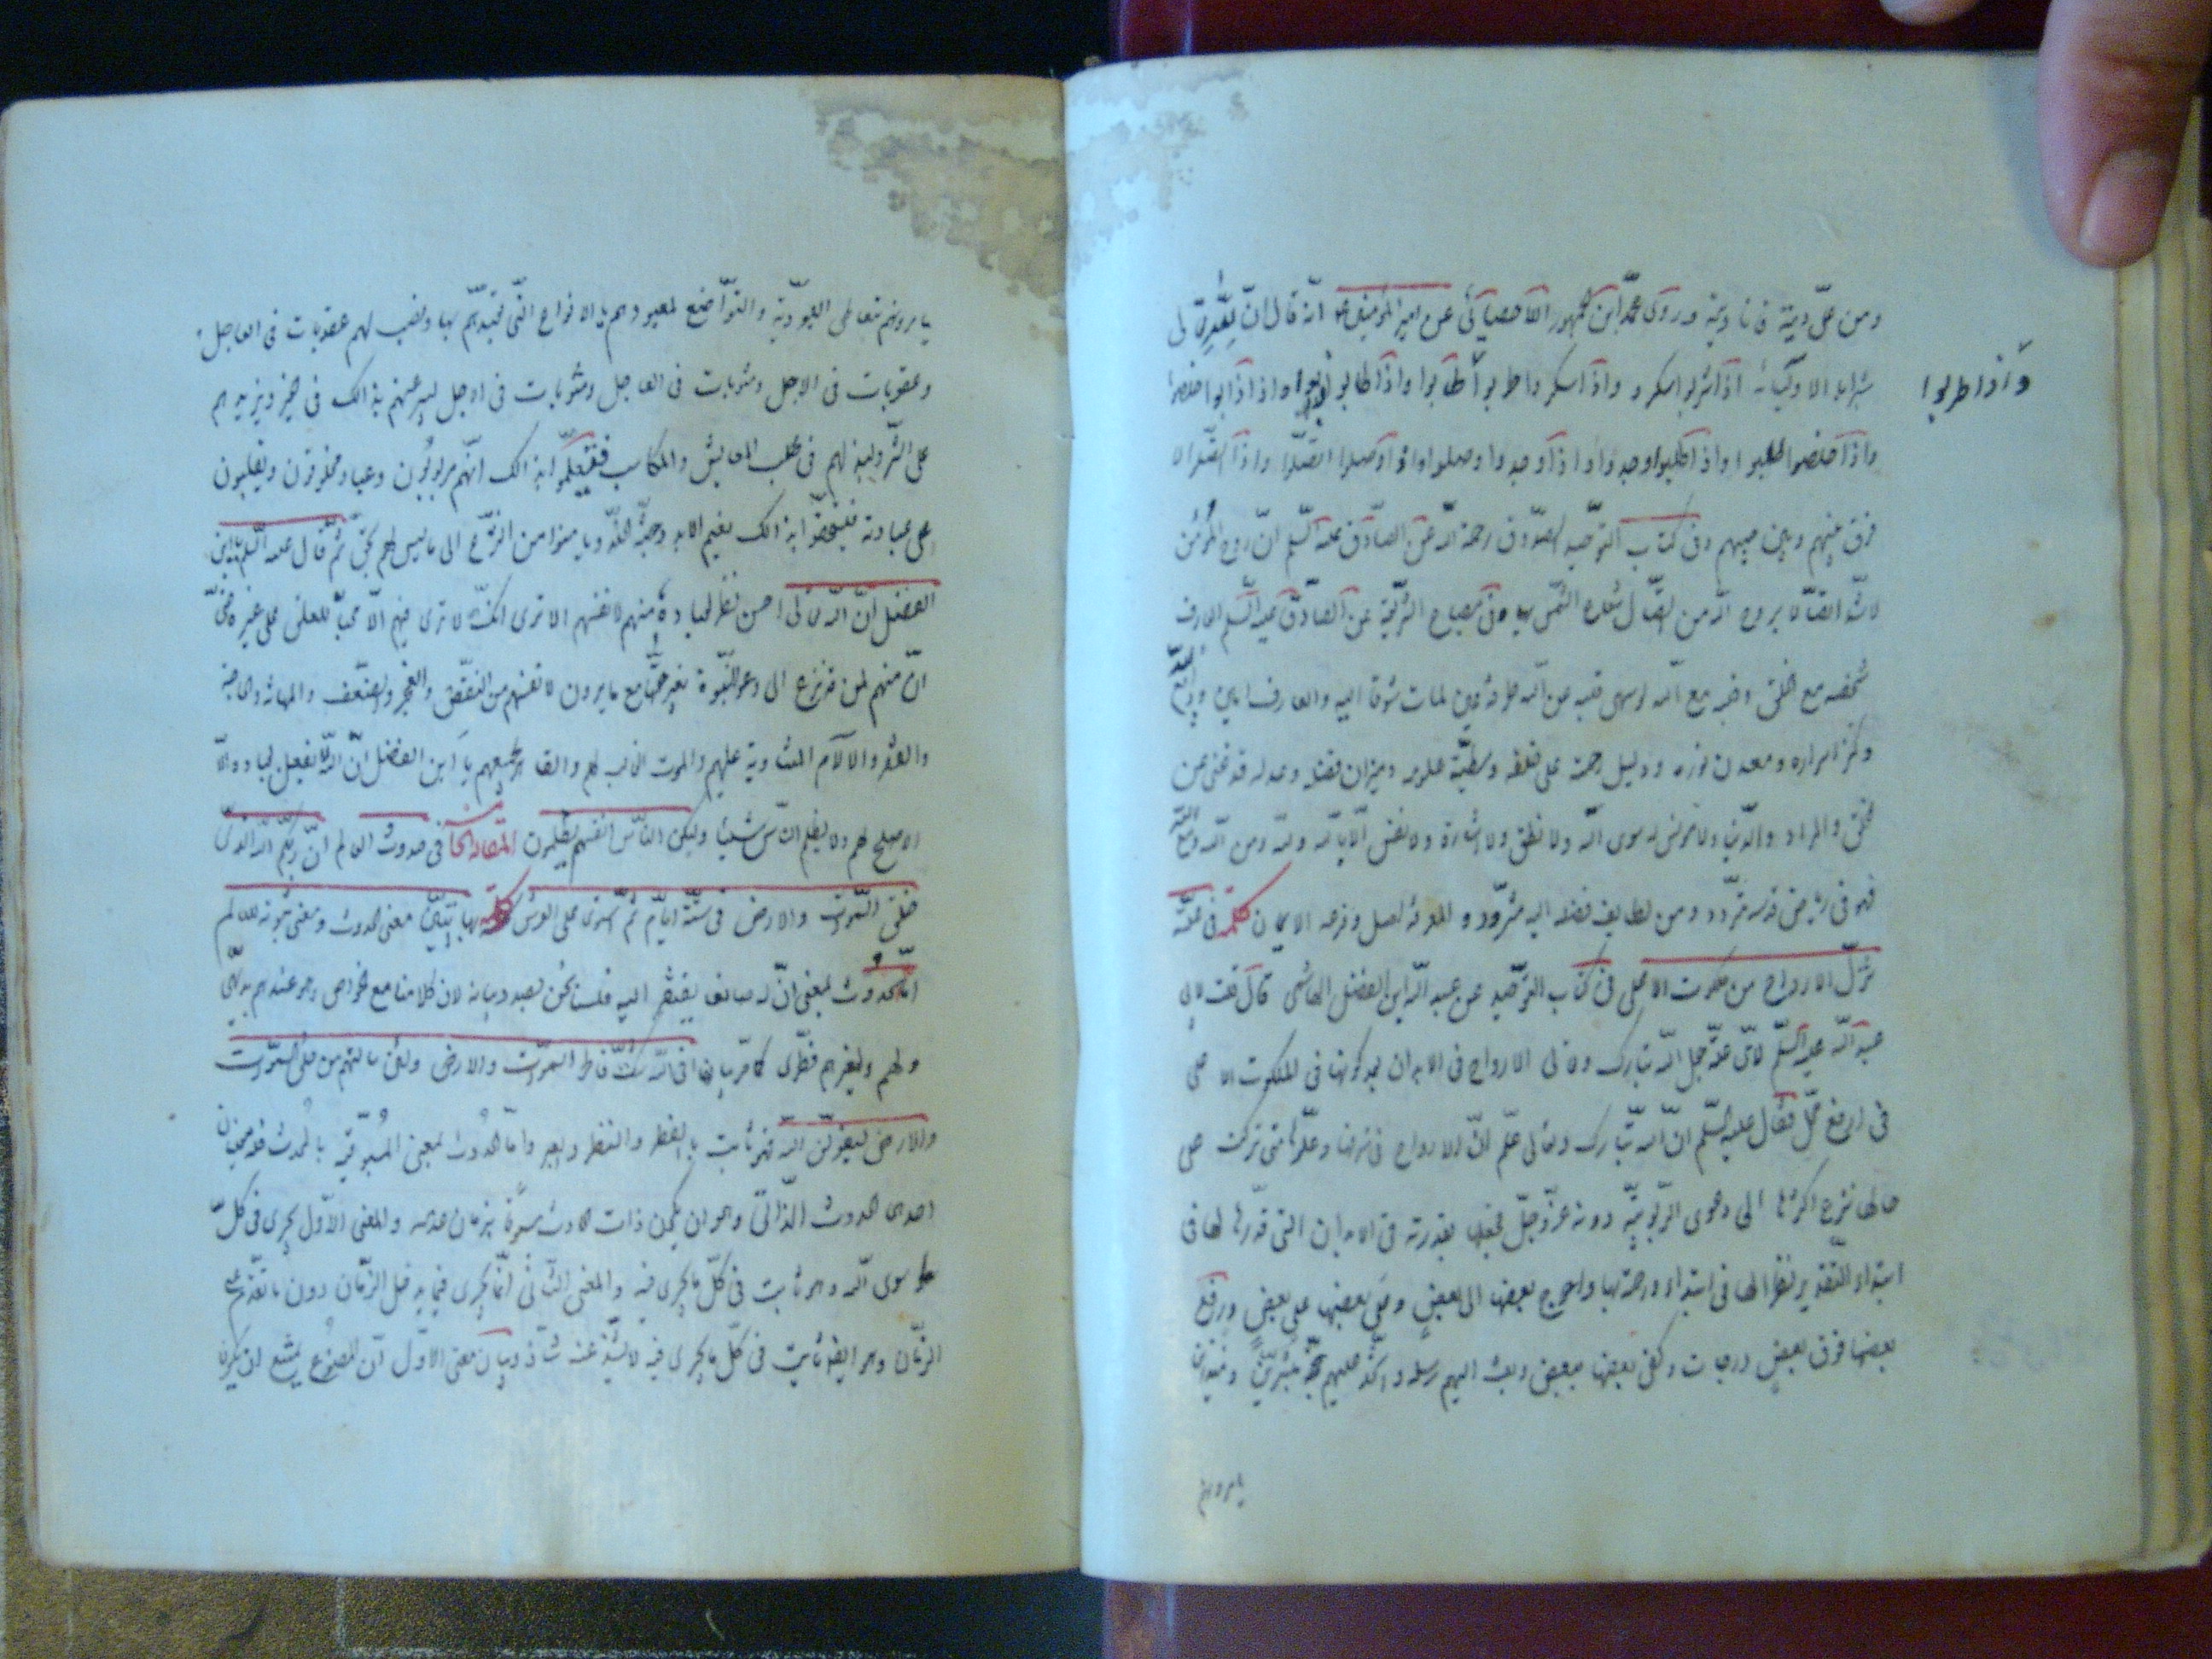 ومن علىّ ديته فانا ديته وروى محمّد ابن جمهور الاحصيائى عن امير المؤمنين ع انّه قال انّ للّه تعالى
شرابا لاوليائه اذا شربوا سكروا واذا سكروا طربوا واذا طابوا ذابوا واذا ذابوا خلصوا
واذا طربوا
واذا خلصوا طلبوا واذا طلبوا وجدوا واذا وجدوا وصلوا واذا وصلوا اتصلوا واذا اتصلوا لا
فرق بينهم وبين حبيبهم وفى كتاب التوحيد للصدوق رحمه اللّه عن الصادق عليه السلم انّ روح المؤمن
لاشدّ اتصالا بروح اللّه من اتصال شعاع الشمس بها وفى مصباح الشريعة عن الصادق عليه السلم العارف
شخصه مع الخلق وقلبه مع اللّه لو سهى قلبه عن اللّه طرفة عين لمات شوقا اليه والعارف امين ودايع اللّه
وكنز اسراره ومعدن نوره ودليل رحمته على خلقه ومطيّة علومه وميزان فضله وعدله قد غنى عن
الخلق والمراد والدنيا ولا مونس له سوى اللّه ولا نطق ولا اشارة ولا نفس الّا باللّه وللّه ومن اللّه ومع اللّه
فهو فى رياض قدسه متردّد ومن لطايف فضله اليه متزوّد والمعرفة اصل وفرعه الايمان كلمة فى علّة
تنزّل الارواح من ملكوت الاعلى فى كتاب التوحيد عن عبد اللّه ابن الفضل الهاشمى قال قلت لابى
عبد اللّه عليه السلّم لاىّ علّة جعل اللّه تبارك وتعالى الارواح فى الابدان بعد كونها فى الملكوت الاعلى
فى ارفع محلّ فقال عليه السلّم انّ اللّه تبارك وتعالى علم انّ الارواح فى شرفها وعلوّها متى تركت على
حالها نزع اكثرها الى دعوى الرّبوبيّة دونه عزّ وجلّ فجعلها بقدرته فى الابدان التى قدّرها لها فى
ابتداء التقدير نظرا لها فى ابتداء ورحمة بها واحوج بعضها الى بعض وعلى بعضها على بعض ورفع
بعضها فوق بعض درجات وكفى بعضها ببعض وبعث اليهم رسله واتّخذ عليهم حججه مبشّرين ومنذرين
يامرونهم
يامرونهم بتعاطى العبوديّة والتواضع لمعبودهم بالانواع التى تعبّدهم بها ونصب لهم عقوبات فى العاجل
وعقوبات فى الاجل ومثوبات فى العاجل ومثوبات فى الاجل ليرغبهم بذالك فى الخير ويزهدهم
على الشر وليذلّهم فى طلب المعايش والمكاسب فيعلموا بذالك انّهم مربوبون وعباد مخلوقون ويقبلون
على عبادته فيستحقّوا بذالك نعيم الابد وجنّة الخلد ويامنوا من النزع الى ما ليس لهم بحقّ ثمّ قال عليه السلم يابن
الفضل انّ اللّه تعالى احسن نظرا لعباده منهم لانفسهم الا ترى انّك لا ترى فيهم الّا محبّا للعلو على غيره حتّى
انّ منهم لمن قد نزع الى دعوى النبوّة بغير حقّها مع ما يرون لانفسهم من النقص والعجز والضعف والمهانة والحاجة
والفقر والالام المتناوبة عليهم والموت الغالب لهم والقاهر لجميعهم يا ابن الفضل انّ اللّه لا يفعل لعباده الّا
الاصلح لهم ولا يظلم الناس شيئا ولكن الناس انفسهم يظلمون المقالة فى حدوث العالم انّ ربّكم اللّه الذى
خلق السموات والارض فى ستّة ايّام ثمّ استوى على العرش كلمة بها يتبيّن معنى الحدوث ومعنى ثبوته للعالم
امّا الحدوث بمعنى انّ له صانعا يفتقر اليه فلسنا نحن بصدد بيانه لان كلامنا مع الخواص وهو عندهم بديهى
ولهم ولغيرهم فطرى كما مرّ بيانه افى اللّه شكّ فاطر السموات والارض ولئن سالتهم من خلق السموات
والارض ليقولنّ اللّه فهو ثابت بالفطر والنظر والعبر وامّا الحدوث بمعنى المسبوقية بالعدم فهو معنيان
احدى الحدوث الذّاتى وهو ان يكون ذات الحادث مسبوقا بزمان عدمه والمعنى الاوّل يجرى فى كلّ
ما سوى اللّه وهو ثابت فى كلّ ما يجرى فيه والمعنى الثانى انّما يجرى فيما يدخل الزمان دون ما تقدّم على
الزمان وهو ايضا ثابت فى كلّ ما يجرى فيه لا يشذّ عنه شاذّ وبيان معنى الاوّل انّ المصنوع يمتنع ان يكون